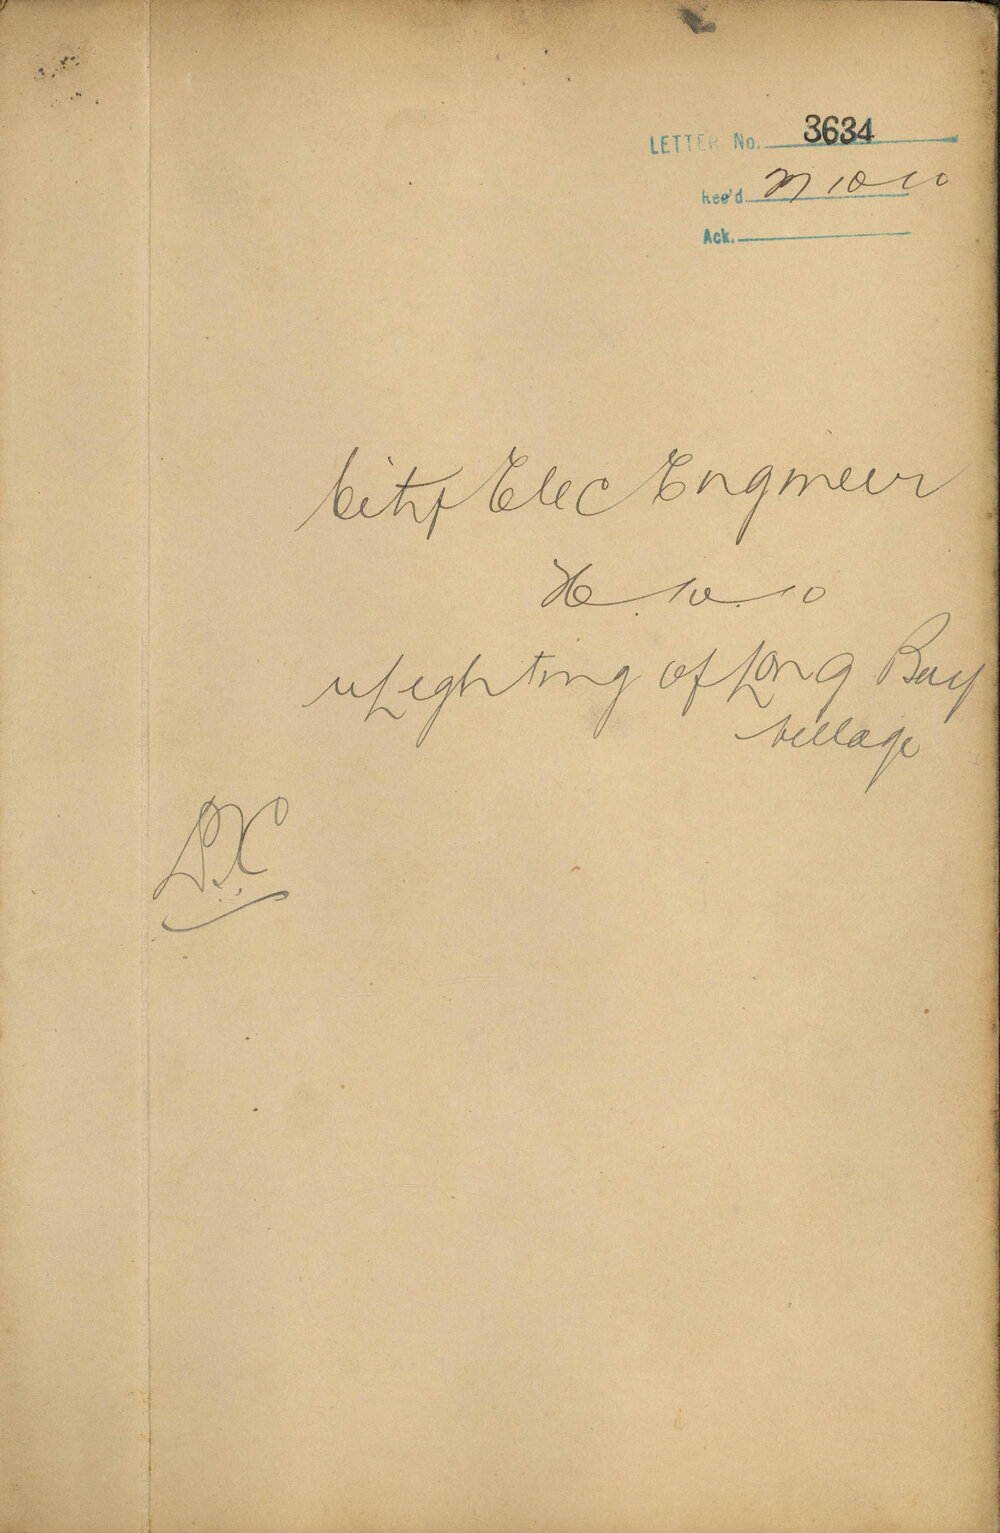 LETTER No. 3634
Rec'd 10 10
Ack.
City Elec Engineer
10. 10
Lighting of Long Bay
Village